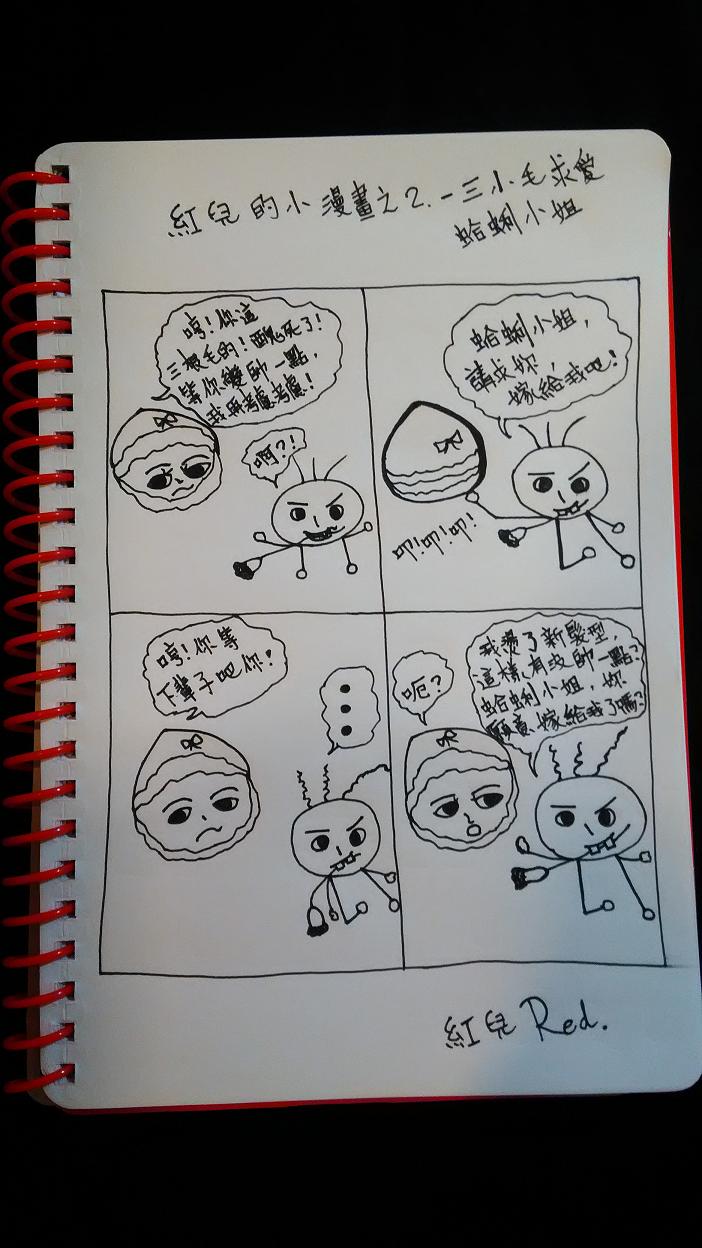 紅兒的小漫畫之2.－三小毛求愛
蛤蜊小姐
蛤蜊小姐，
請求妳，
嫁給我吧！
叩!叩!叩!
哼！你這
三根毛的！醜死了！
等你變帥一點，
我再考慮考慮！
啊?!
我燙了新髮型，
這樣,有沒帥一點？
蛤蜊小姐，妳
願意嫁給我了嗎？
呃？
哼！你等
下輩子吧你！
紅兒 Red.